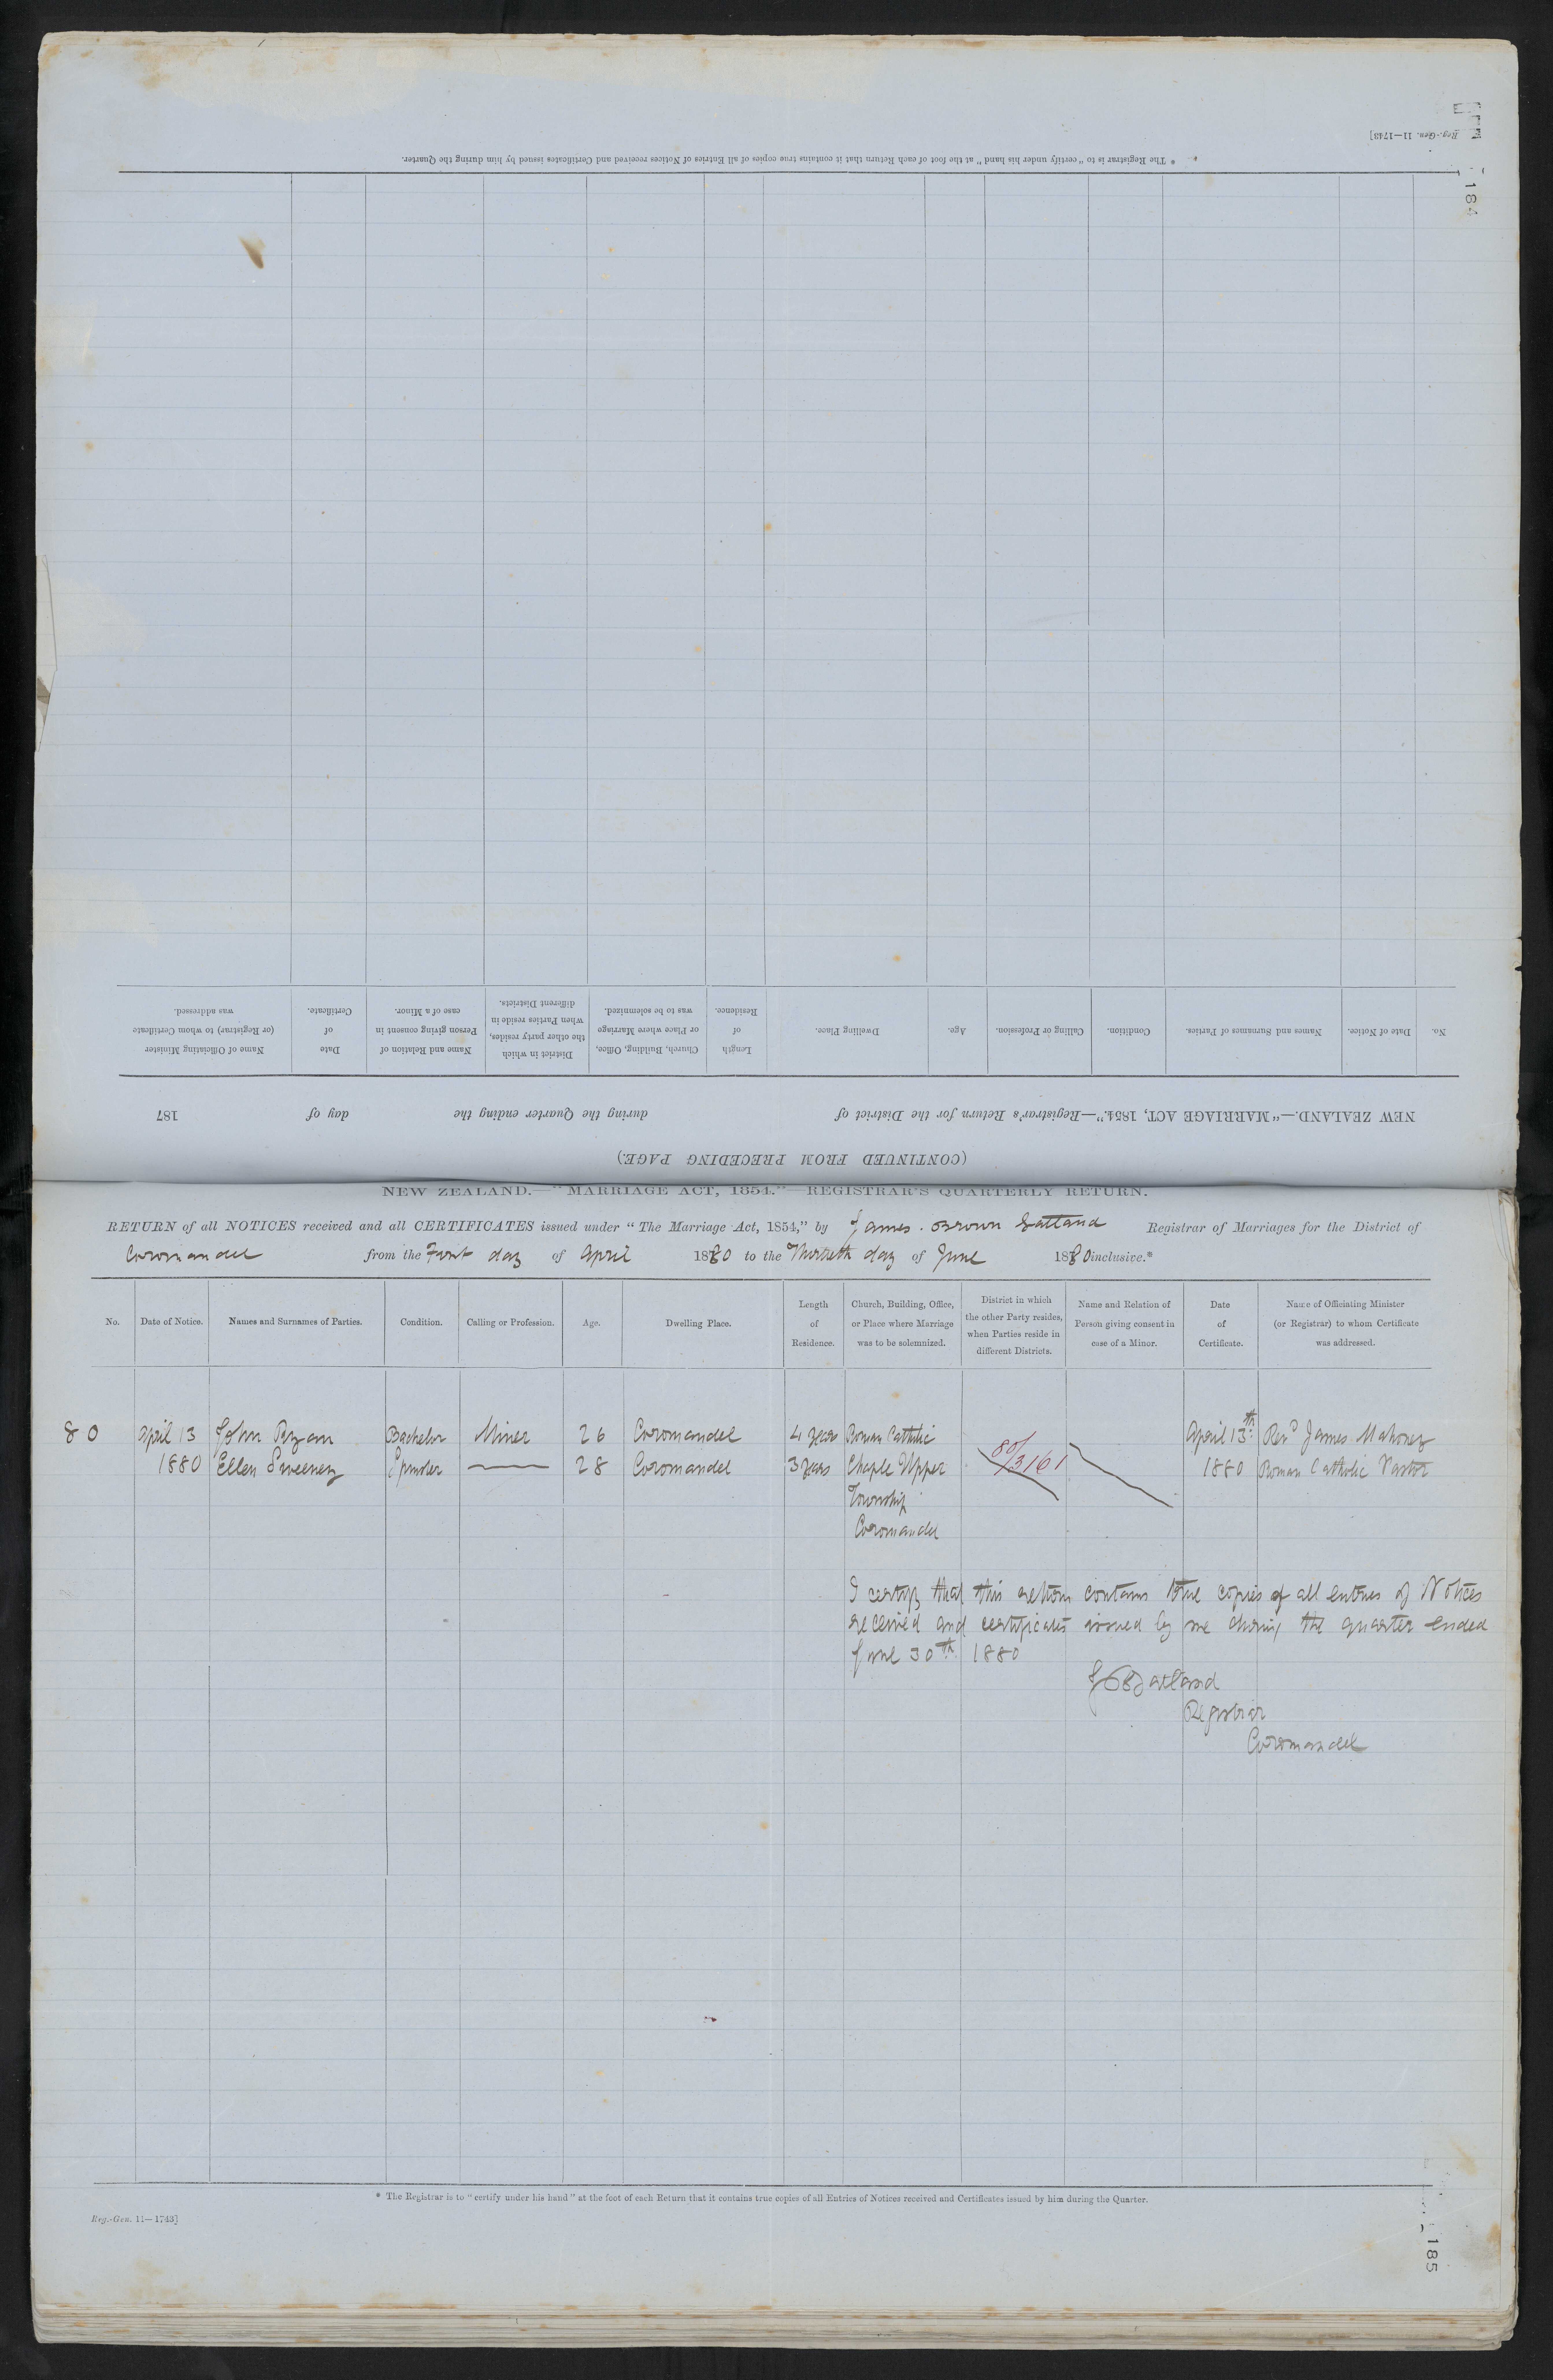 Reg.-Gen. 11—1743]
184
* The Registrar is to "certify under his hand" at the foot of each Return that it contains true copies of all Entries of Notices received and Certificates issued by him during the Quarter.
(CONTINUED FROM PRECEDING PAGE.)
NEW ZEALAND.—"MARRIAGE ACT, 1854."—Registrar's Return for the District of during the Quarter ending the day of 187
No. Date of Notice. Names and Surnames of Parties. Condition. Calling or Profession. Age. Dwelling Place. Length of Residence. Church, Building, Office, or Place where Marriage was to be solemnized. District in which the other party resides, when Parties reside in different Districts. Name and Relation of Person giving consent in case of a Minor. Date of Certificate. Name of Officiating Minister (or Registrar) to whom Certificate was addressed.
NEW ZEALAND.—"MARRIAGE ACT, 1854."—REGISTRAR'S QUARTERLY RETURN.
RETURN of all NOTICES received and all CERTIFICATES issued under "The Marriage Act, 1854," by James Brown Gatland Registrar of Marriages for the District of
Coromandel from the First day of April 1880 to the Thirtieth day of June 1880 inclusive.*
No. Date of Notice. Names and Surnames of Parties. Condition. Calling or Profession. Age. Dwelling Place. Length of Residence. Church, Building, Office, or Place where Marriage was to be solemnized. District in which the other Party resides, when Parties reside in different Districts. Name and Relation of Person giving consent in case of a Minor. Date of Certificate. Name of Officiating Minister (or Registrar) to whom Certificate was addressed.
80 April 13 John Ryan Bachelor Miner 26 Coromandel 4 years Roman Catholic 80/3161 April 13th Revd James Mahoney
1880 Ellen Sweeney Spinster 28 Coromandel 3 years Chaple Upper 1880 Roman Catholic Pastor
Township
Coromandel
I certify that this return contains true copies of all entries of Notices
received and certificates issued by me during the quarter ended
June 30th 1880
J B Gatland
Registrar
Coromandel
* The Registrar is to "certify under his hand" at the foot of each Return that it contains true copies of all Entries of Notices received and Certificates issued by him during the Quarter.
Reg.-Gen. 11—1743]
185